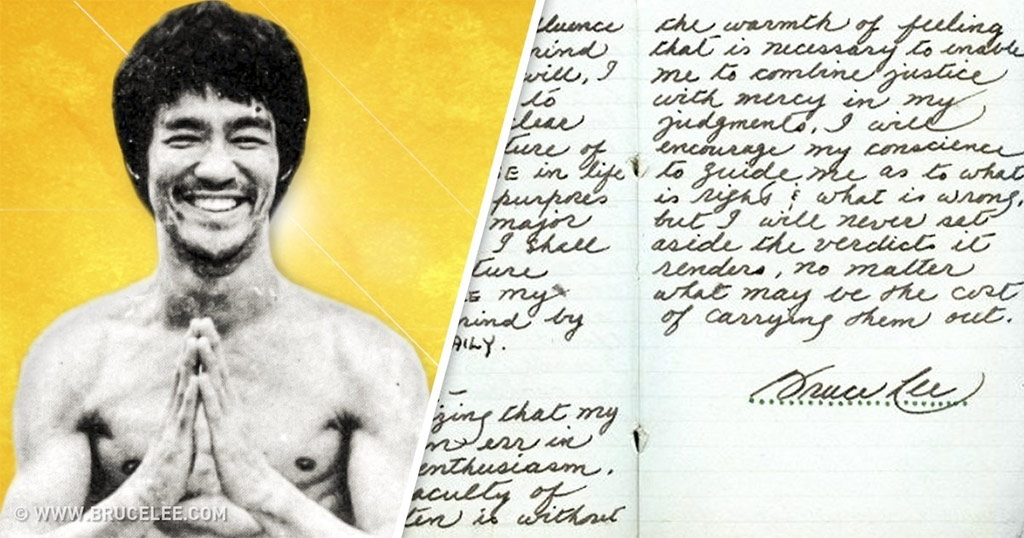 fluence
mind
will, I
to
clear
ture of
E in life
purposes
major
I shall
ture
E my
mind by
AILY.
izing that my
n err in
enthusiasm.
aculty of
ten is without
the warmth of feeling
that is necessary to enable
me to combine justice
with mercy in my
judgments. I will
encourage my conscience
to guide me as to what
is right & what is wrong,
but I will never set
aside the verdicts it
renders, no matter
what may be the cost
of carrying them out.
Bruce Lee
© WWW.BRUCELEE.COM